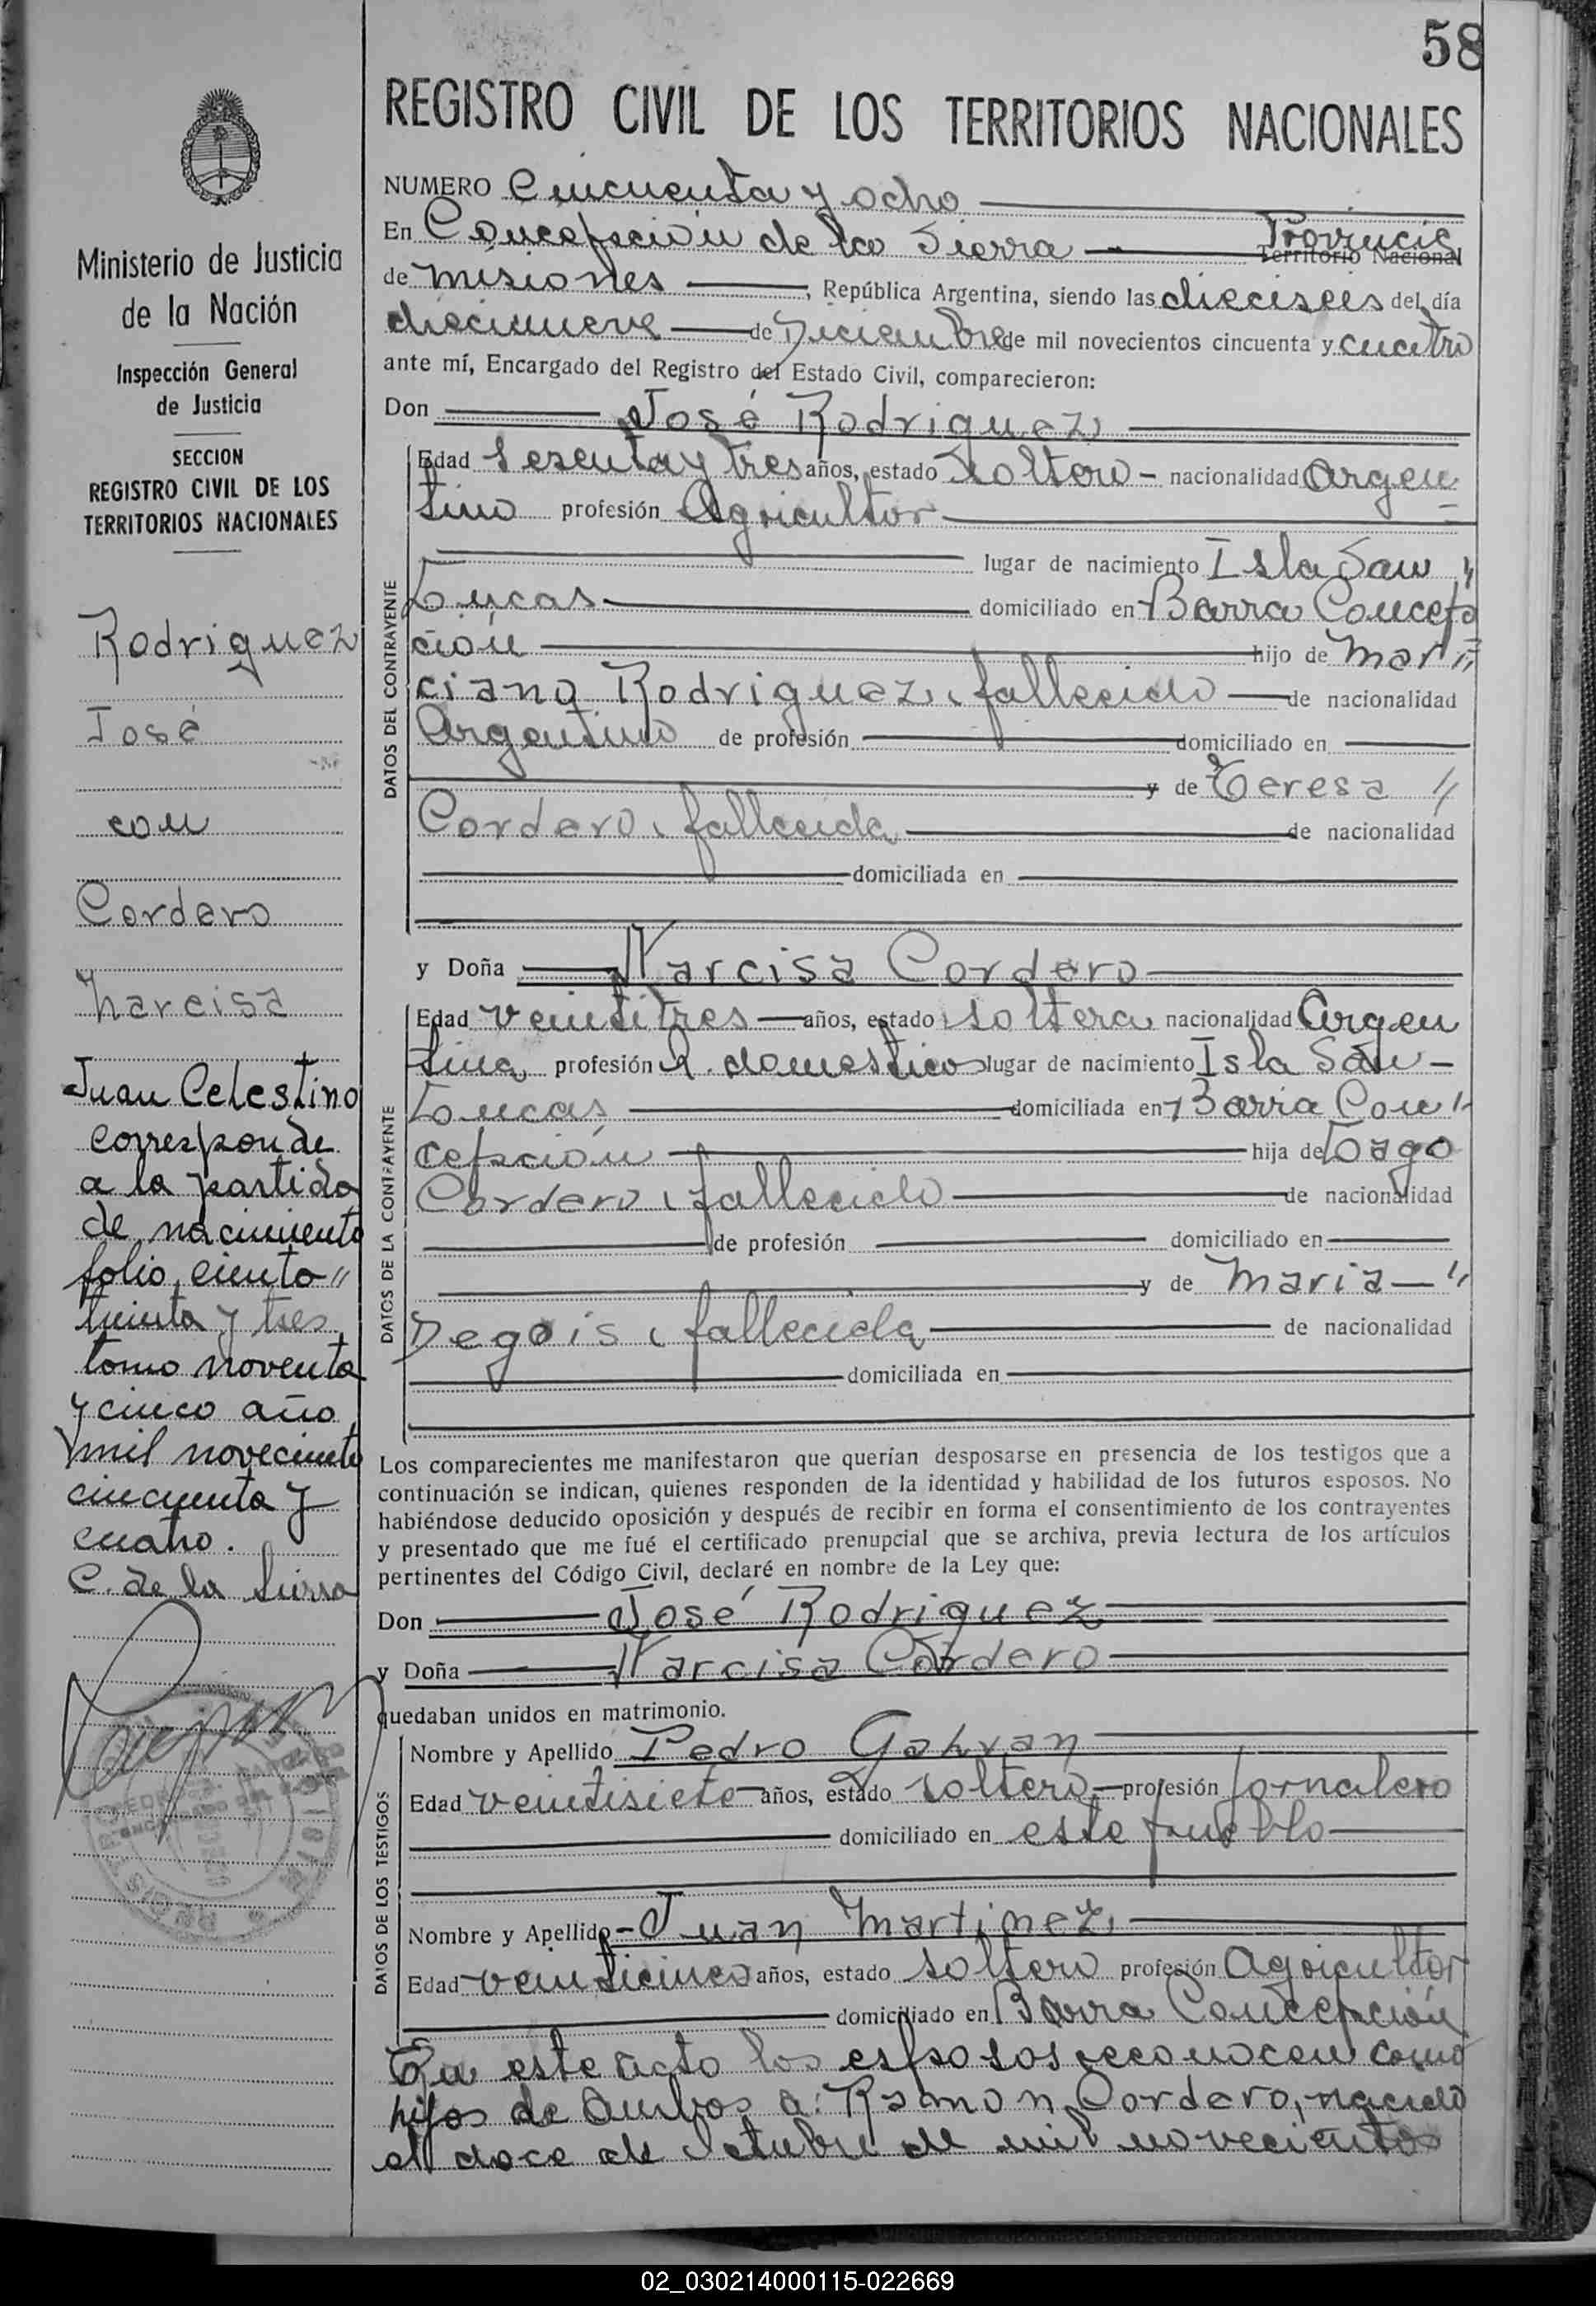 58
REGISTRO CIVIL DE LOS TERRITORIOS NACIONALES
Ministerio de Justicia
de la Nación
Inspección General
de Justicia
SECCION
REGISTRO CIVIL DE LOS
TERRITORIOS NACIONALES
Rodriguez
José
con
Cordero
Narcisa
Juan Celestino
corresponde
a la partida
de nacimiento
folio ciento "
treinta y tres
tomo noventa
y cinco año
mil noveciento
cincuenta y
cuatro.
C. de la Sierra
NUMERO Cincuenta y ocho
En Concepción de la Sierra Provincia Territorio Nacional
de Misiones, República Argentina, siendo las dieciseis del día
diecinueve de Diciembre de mil novecientos cincuenta y cuatro
ante mí, Encargado del Registro del Estado Civil, comparecieron:
Don José Rodriguez
DATOS DEL CONTRAYENTE
Edad sesenta y tres años, estado soltero - nacionalidad Argen=
tino profesión Agricultor
lugar de nacimiento Isla San "
Lucas domiciliado en Barra Concep=
ción hijo de Mar=
ciano Rodriguez, fallecido de nacionalidad
Argentino de profesión domiciliado en
y de Teresa "
Cordero, fallecida de nacionalidad
domiciliada en
y Doña Narcisa Cordero
DATOS DE LA CONTRAYENTE
Edad veintitres años, estado soltera nacionalidad Argen
tina profesión q. domesticos lugar de nacimiento Isla San -
Lucas domiciliada en Barra Con "
cepción hija de Lago
Cordero, fallecido de nacionalidad
de profesión domiciliado en
y de Maria - "
Degois, fallecida de nacionalidad
domiciliada en
Los comparecientes me manifestaron que querían desposarse en presencia de los testigos que a
continuación se indican, quienes responden de la identidad y habilidad de los futuros esposos. No
habiéndose deducido oposición y después de recibir en forma el consentimiento de los contrayentes
y presentado que me fué el certificado prenupcial que se archiva, previa lectura de los artículos
pertinentes del Código Civil, declaré en nombre de la Ley que:
Don José Rodriguez
y Doña Narcisa Cordero
quedaban unidos en matrimonio.
DATOS DE LOS TESTIGOS
Nombre y Apellido Pedro Gahvan
Edad veintisiete años, estado soltero profesión Jornalero
domiciliado en este pueblo
Nombre y Apellido Juan Martinez
Edad veinticinco años, estado soltero profesión Agricultor
domiciliado en Barra Concepción
En este acto los esposos reconocen como
hijos de ambos a: Ramon Cordero, nacido
el doce de octubre de mil novecientos
02_030214000115-022669